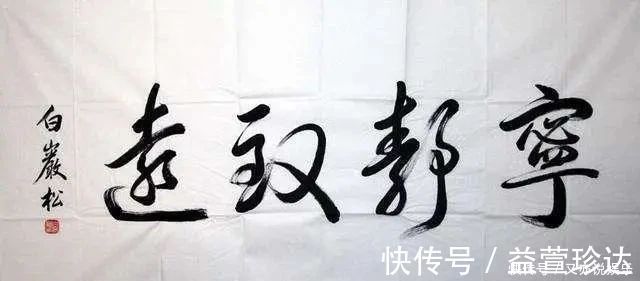 寧靜致遠
白巖松
快传号／益萱珍达